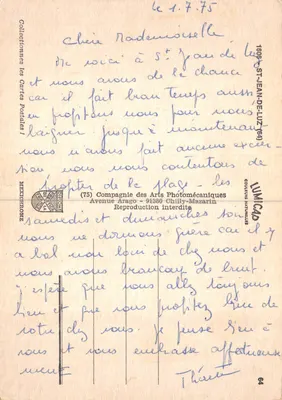 le 1.7.75
Chère Mademoiselle
Me voici à St Jean de Luz
et nous avons de la chance
car il fait beau temps aussi
en profitons nous pour nous
baigner jusqu'à maintenant
nous n'avons fait aucune excur-
sion nous nous contentons de
profiter de la plage. les
samedis et dimanches soir
nous ne dormons guère car il y
a bal non loin de chez nous et
nous avons beaucoup de bruit.
J'espère que vous allez toujours
bien et que vous profitez bien de
votre chez vous. Je pense bien à
vous et vous embrasse affectueuse
ment
Collectionnez les Cartes Postales !
MEXICHROME
(75) Compagnie des Arts Photomécaniques
Avenue Arago - 91380 Chilly-Mazarin
Reproduction interdite
ST-JEAN-DE-LUZ (64)
LUMICAP
64